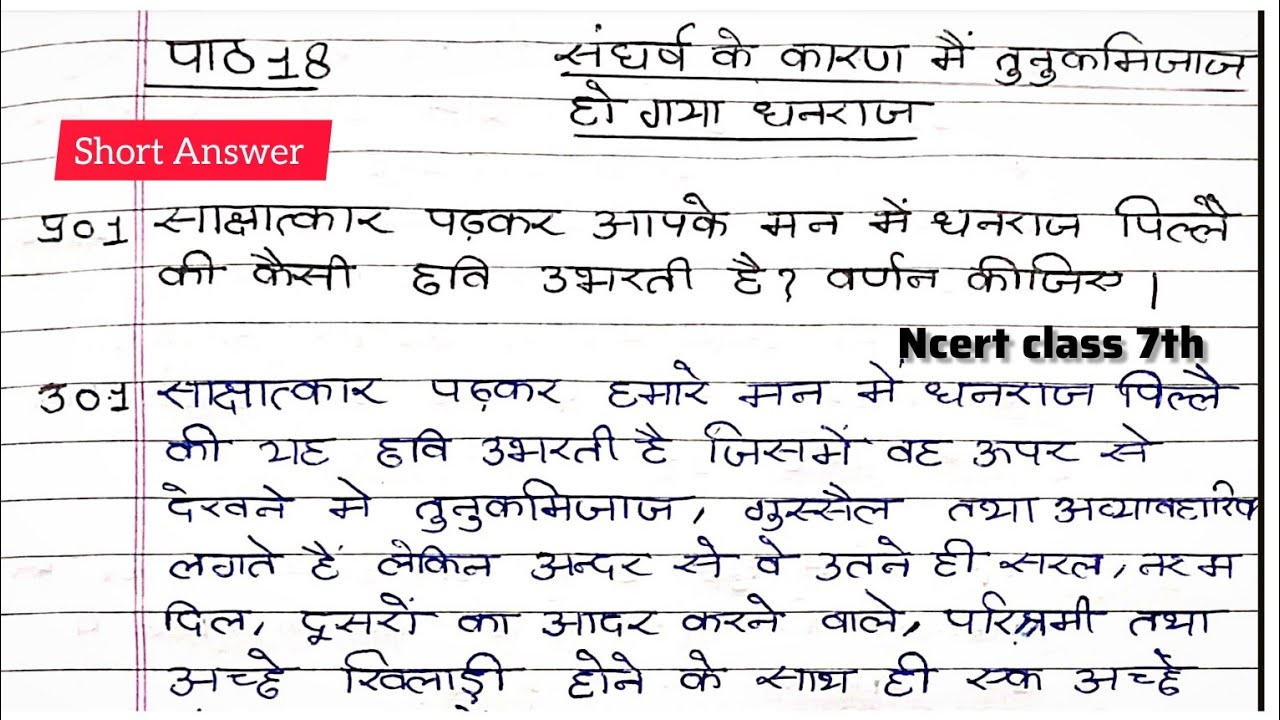 पाठ 18 संघर्ष के कारण मैं तुनुकमिजाज
हो गया धनराज
Short Answer
प्र01 साक्षात्कार पढ़कर आपके मन में धनराज पिल्लै
की कैसी छवि उभरती है? वर्णन कीजिए।
Ncert class 7th
उ0.1 साक्षात्कार पढ़कर हमारे मन में धनराज पिल्लै
की यह छवि उभरती है जिसमें वह ऊपर से
देखने मे तुनुकमिजाज, गुस्सैल तथा अव्यावहारिक
लगते हैं लेकिन अन्दर से वे उतने ही सरल, नरम
दिल, दूसरों का आदर करने वाले, परिश्रमी तथा
अच्छे खिलाड़ी होने के साथ ही एक अच्छे